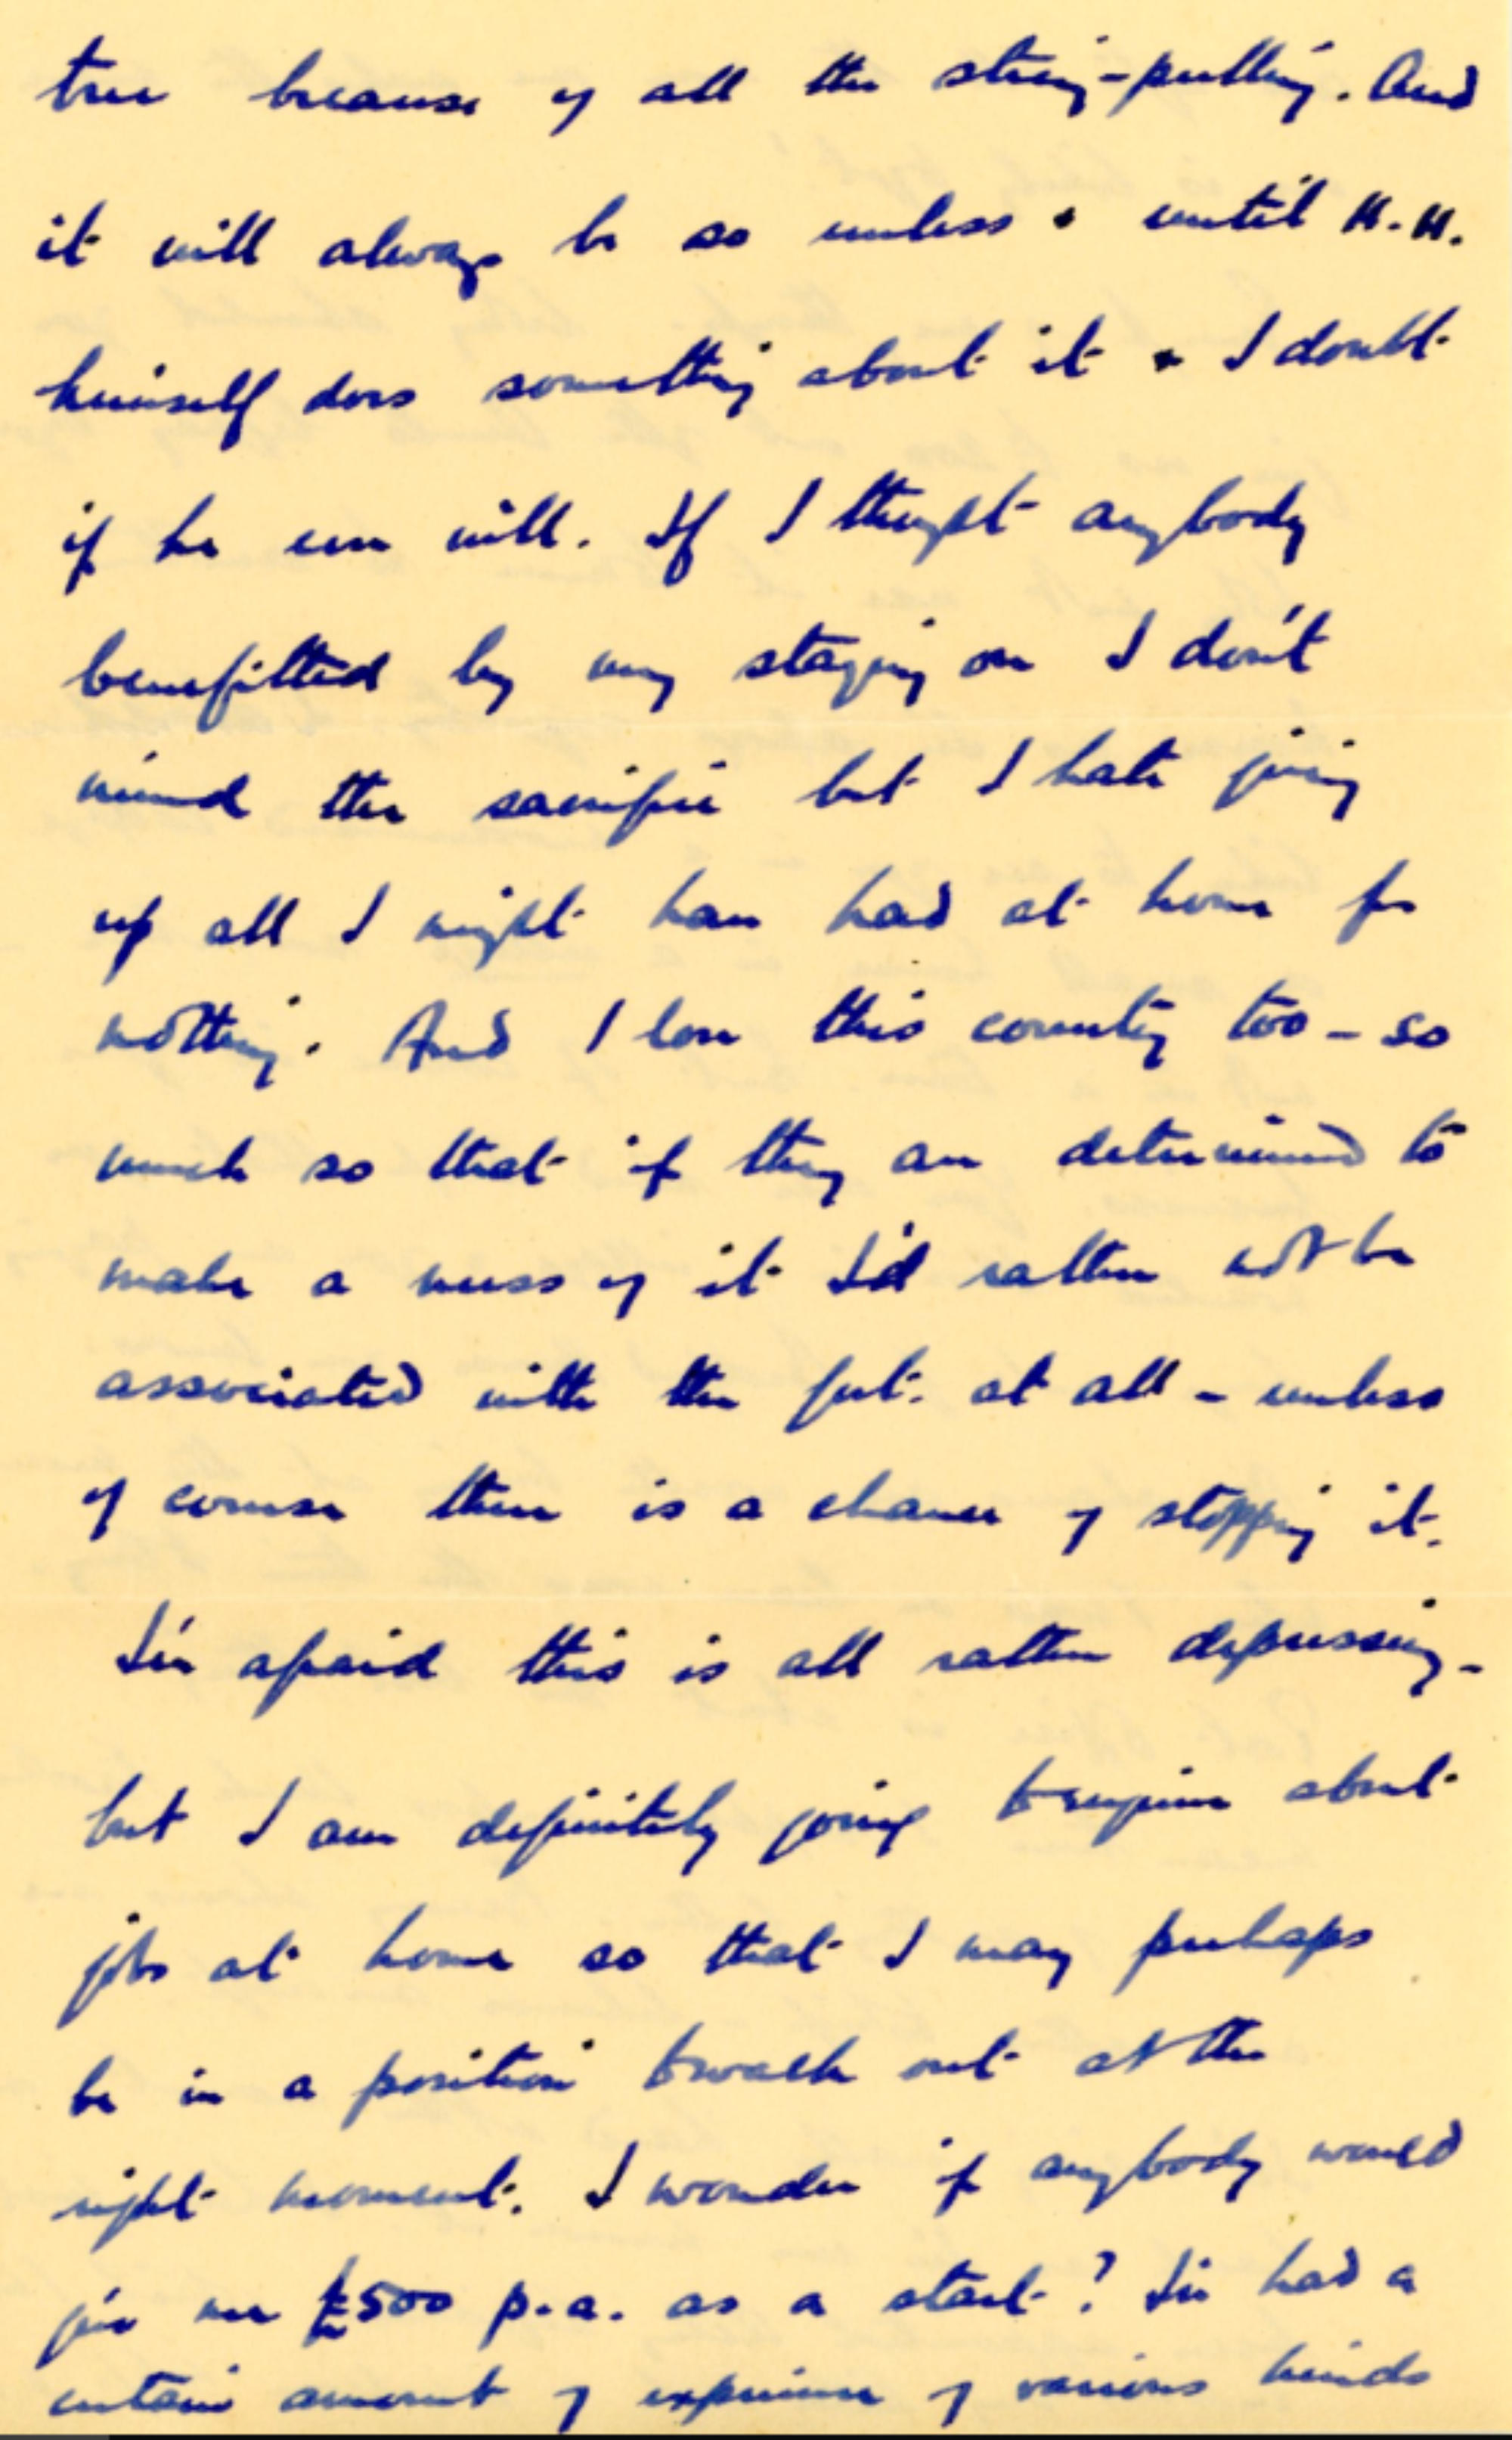 true because of all the string-pulling. And
it will always be so unless & until H.H.
himself does something about it & I doubt
if he ever will. If I thought anybody
benefitted by my staying on I don't
mind the sacrifice but I hate giving
up all I might have had at home for
nothing. And I love this country too - so
much so that if they are determined to
make a mess of it I'd rather not be
associated with the fut. at all - unless
of course there is a chance of stopping it.
I'm afraid this is all rather depressing -
but I am definitely going to enquire about
jobs at home so that I may perhaps
be in a position to walk out at the
right moment. I wonder if anybody would
give me £500 p.a. as a start? I've had a
certain amount of experience of various kinds